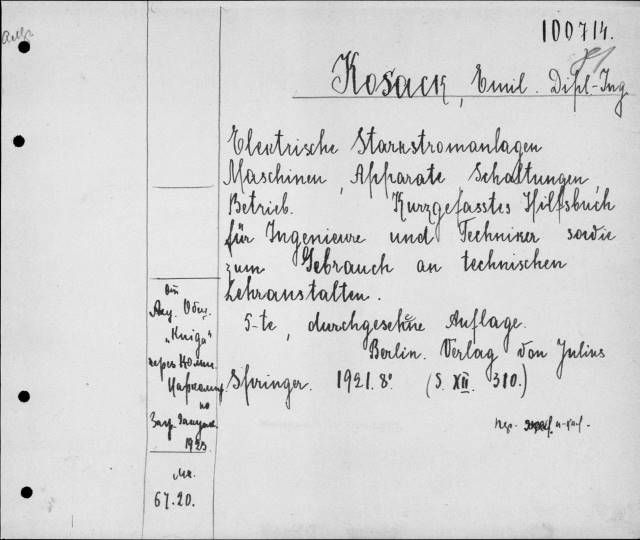 100714.
Kosack, Emil. Dipl.-Ing.
Electrische Starkstromanlagen
Maschinen, Apparate Schaltungen,
Betrieb. Kurzgefasstes Hilfsbuch
für Ingenieure und Techniker sowie
zum Gebrauch an technischen
Lehranstalten.
5-te, durchgesehne Auflage.
Berlin. Verlag von Julius
Springer. 1921. 8° (S. XII. 310.)
От
Акц. Общ.
„Kniga"
через Комис.
Наркомп.
по
Загр. Закупк.
1923
Мк.
67.20.